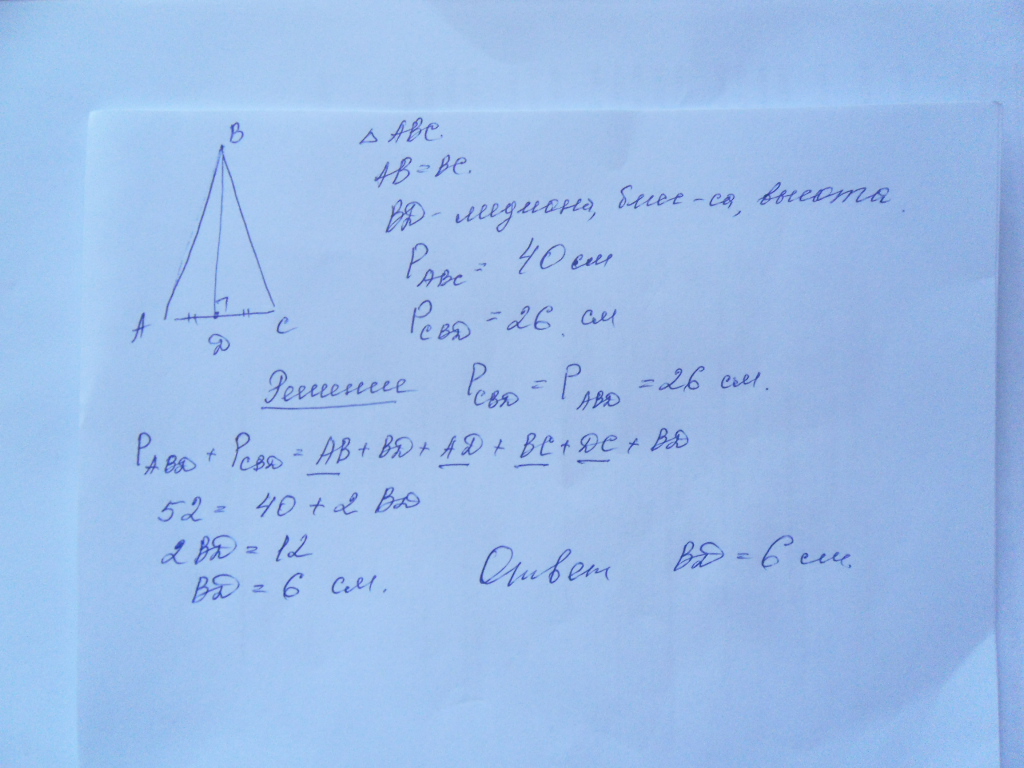 B
A
C
D
△ ABC.
AB = BC.
BD - медиона, бисс-са, высота.
P_ABC = 40 см
P_CBD = 26 см
Решение P_CBD = P_ABD = 26 см.
P_ABD + P_CBD = AB + BD + AD + BC + DC + BD
52 = 40 + 2 BD
2BD = 12
BD = 6 см.
Ответ BD = 6 см.